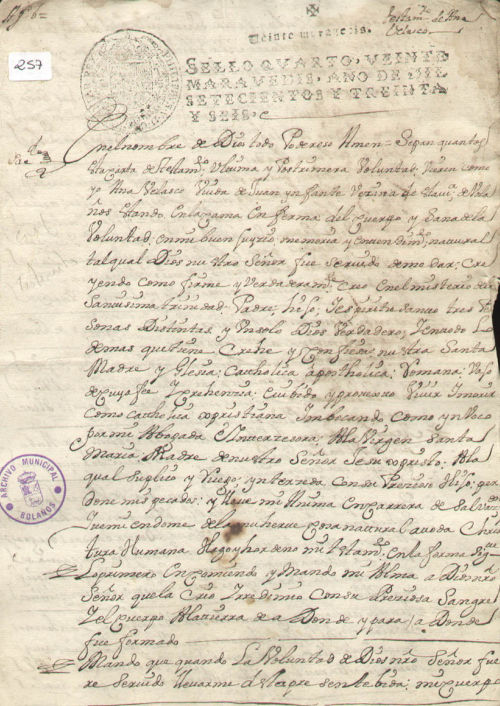 257
Testamto de Ana
Velasco
Veinte maravedis.
SELLO QVARTO, VEINTE
MARAVEDIS, AÑO DE MIL
SETECIENTOS Y TREINTA
Y SEIS,
Enelnombre de Dios todo Poderoso Amen = Sepan quantos
esta carta de testamto Vltima y Postrimera Voluntad, Vieren como
yo Ana Velasco Viuda de Juan ynfante Vezina de esta Villa de Vola
ños estando, enlacama enferma del cuerpo y Sana dela
Voluntad, en mi buen Juyzio memoria y entendimto natural
tal qual Dios nuestro Señor fue seruido de me dar; Cre
yendo como firme y Verdaderamte creo enel misterio dela
Santisima trinidad, Padre, hijo, y espiritu santo tres Per
sonas Distintas, y Vnsolo Dios Verdadero, y en todo lo
demas que tiene Crehe y Confiesa nuestra Santa
Madre yglesia, Catholica apostholica, Romana Vajo
de cuya fee y crehenzia, e Viuido y protexto Viuir y morir
como catholica xpristiana Imbocando como ynVoco
por mi Abogada e Yntercesora, Ala Virgen Santa
Maria Madre de nuestro Señor Jesu xpristo, Ala
qual Suplico y Ruego, ynterzeda con su Prezioso Hijo, per
done mis pecados; y lleue mi Anima en carrera de Salvon
y temiendome dela muerte cosa natural a toda Cria
tura Humana Hago y hordeno mi testamto enla forma sigte
Lo primero Encomiendo y Mando mi Alma a Dios nro
Señor que la crio y rredimio con su Preziosa Sangre
Y el cuerpo Ala tierra de a Donde y para a Donde
fue formado
Mando que quando La Voluntad de Dios nro Señor fue
re seruido lleuarme de esta presente bida; mi cuerpo
ARCHIVO MUNICIPAL
BOLAÑOS